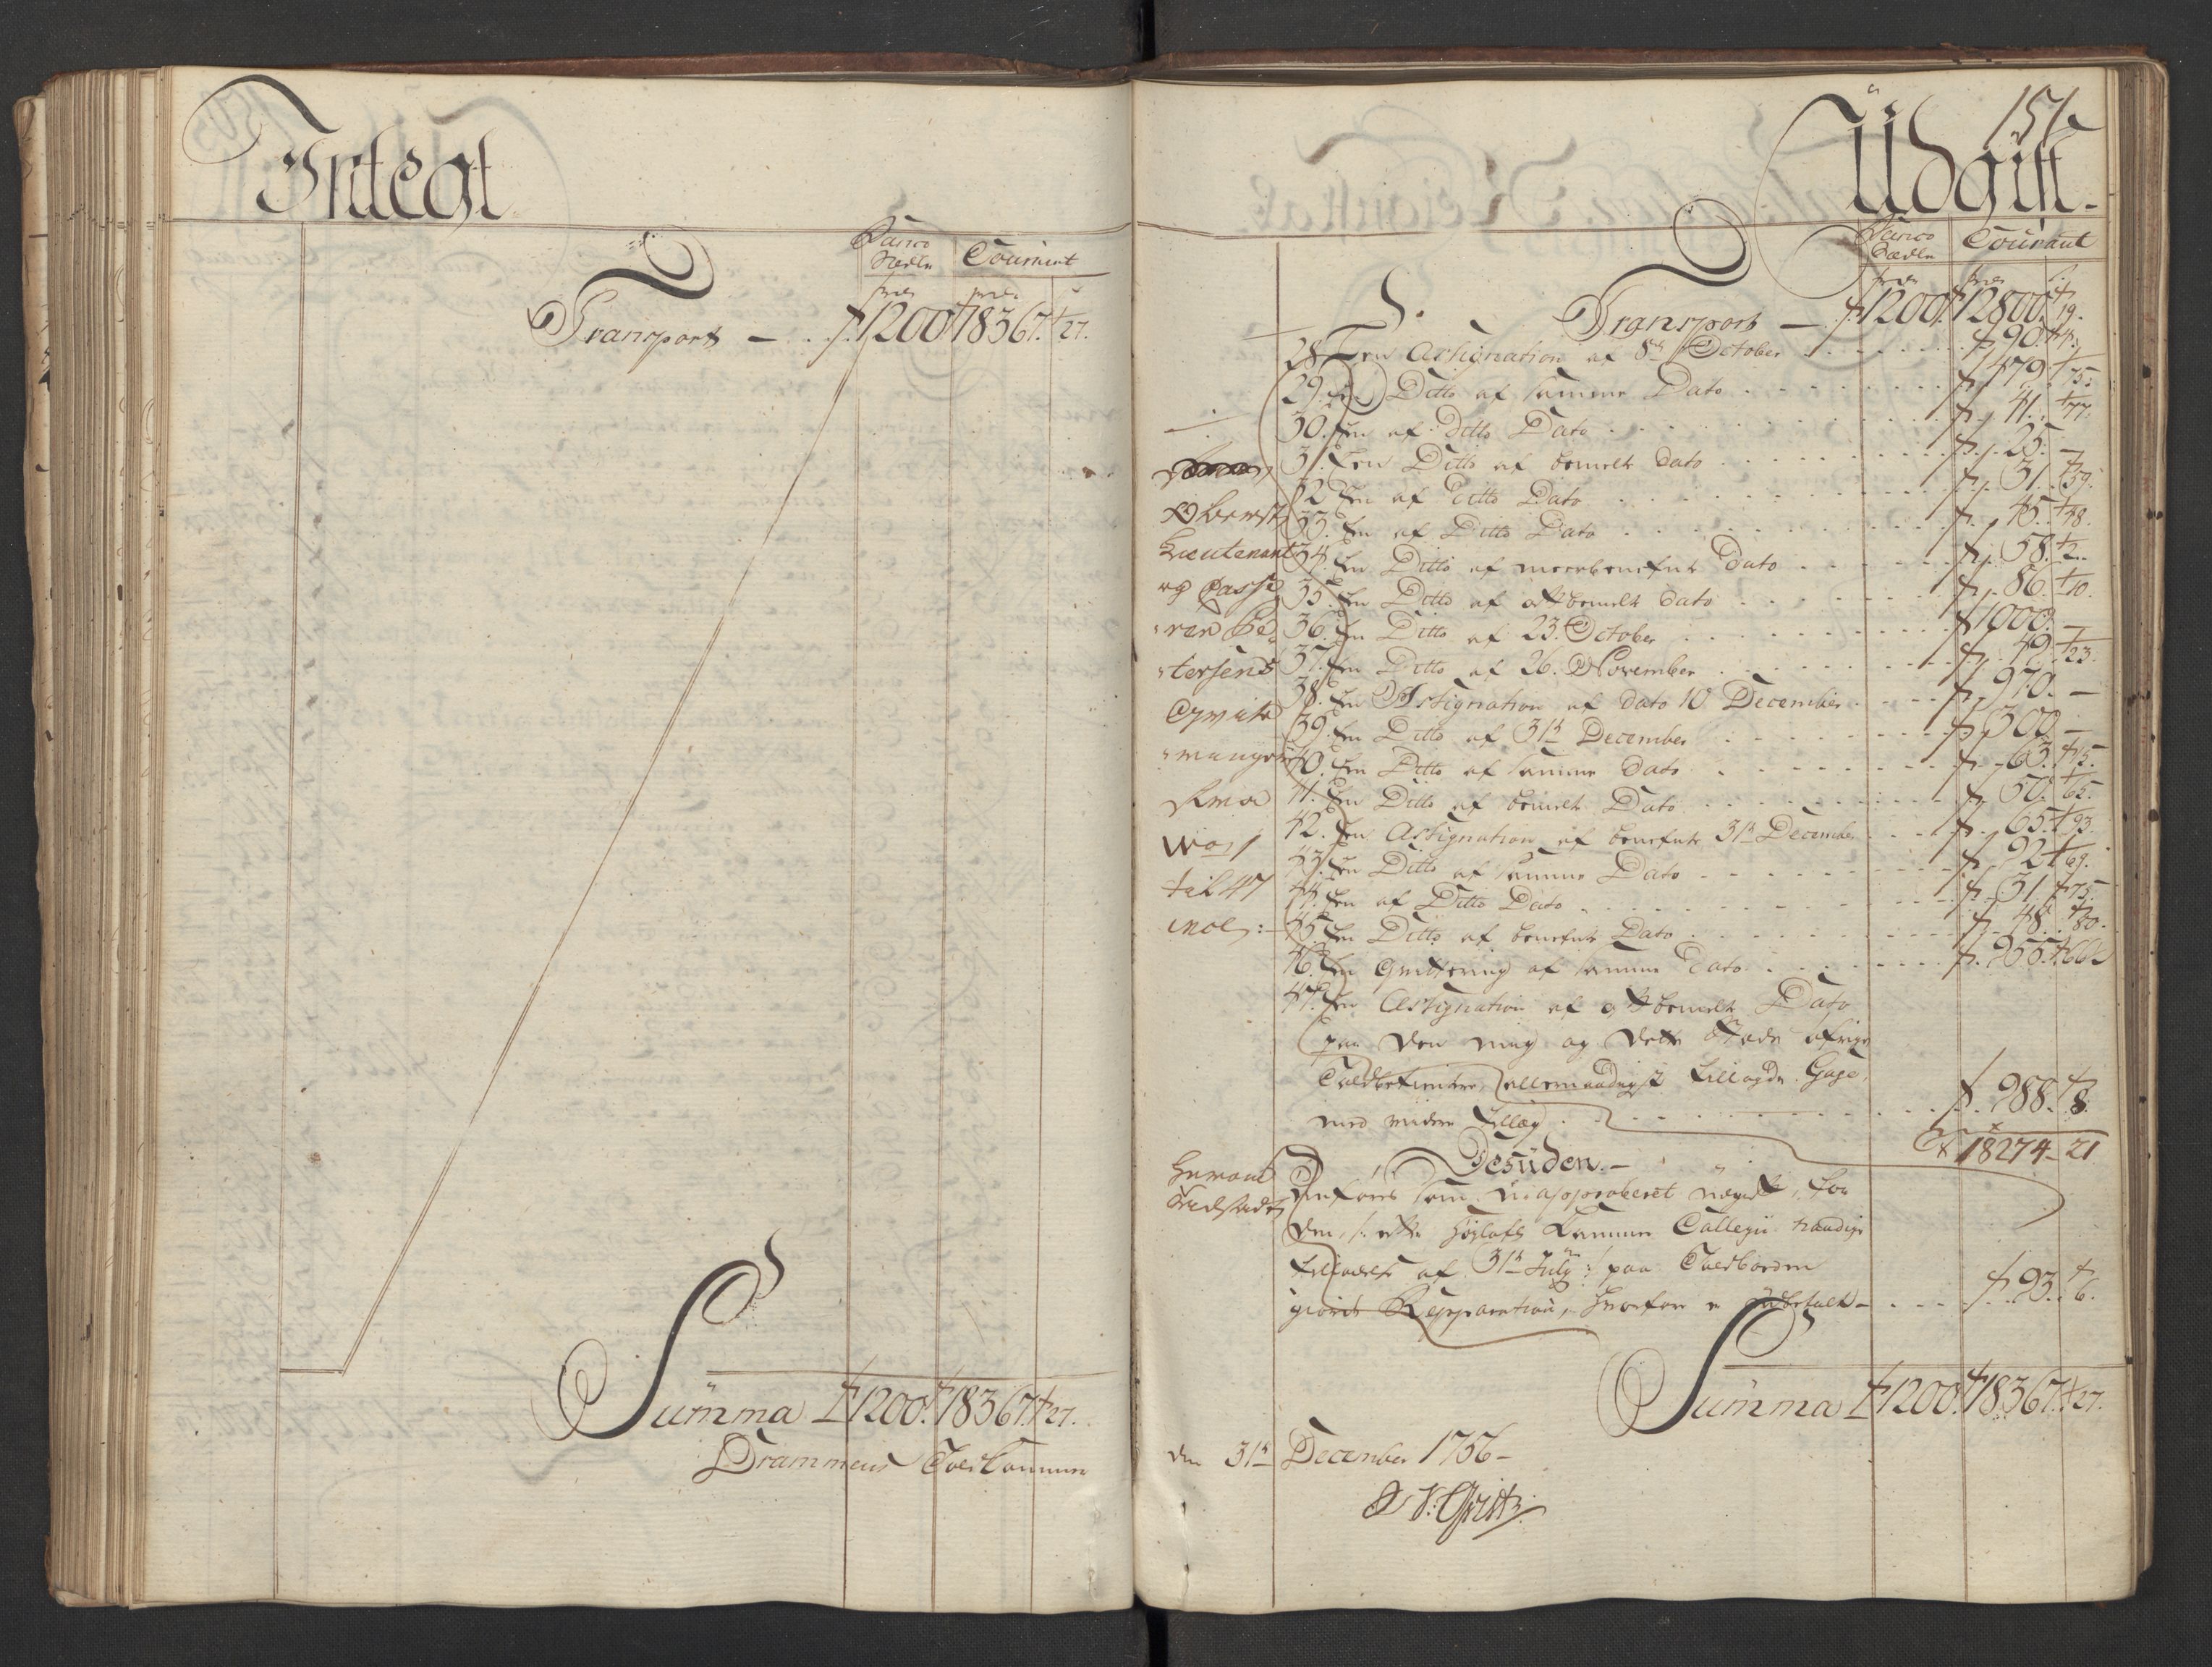 Indtegt
Banco Sedler Courant
Transport — 1200. 18367. 27.
Summa 1200. 18367. 27.
Drammens Toldkammer
151
Udgift.
Banco Sedler Courant
Transport — 1200. 12800. 19.
28. En Assignation af 8de October 90.
29. En Ditto af samme Dato 179. 75.
30. En af ditto Dato 41. 77.
31. En Ditto af bemelte dato 25. —
32. En af Ditto Dato 31. 39.
33. En af Ditto Dato 45. 48.
34. En Ditto af meerbenefnte Dato 58. 2.
35. En Ditto af oftbemelte dato 86. 10.
36. En Ditto af 23. October 1000. —
37. En Ditto af 26. November 49. 23.
38. En Assignation af dato 10 December 970. —
39. En Ditto af 31te December 300. —
40. En Ditto af samme dato 63. 15.
41. En Ditto af bemelte Dato 50. 65.
42. En Assignation af benefnte 31te December 65. 93.
43. En Ditto af samme Dato 92. 69.
44. En af Ditto Dato 31. 75.
45. En Ditto af benefnte Dato 48. 80.
46. En Qvittering af samme Dato 955. 66
47. En Assignation af oftbemelte Dato
paa den mig og dette Steds øfrige
Toldbetientere allernaadigst tillagde Gage,
med videre Tillæg 988. 8.
18274 - 21
Oberst
Lieutenant
og Casse
rer Pe
tersens
Qvite
ringer
fra
No 1
til 47
incl:
Desuden. —
Anføres som u-approberet udgift, for
den /: efter Høylofl Cammer Collegii naadige
tilladelse af 31te July :/ paa Toldboeden
giorde Repparation, hvorfor er udbetalt — 93. 6.
Summa 1200. 18367. 27.
den 31te December 1756 —